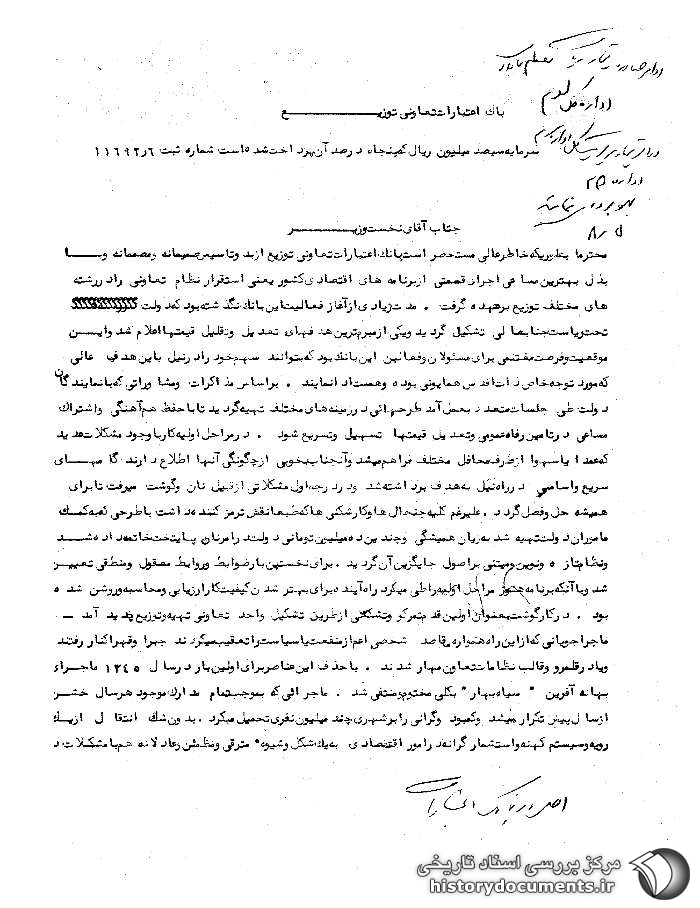 اداره کل
بانك اعتبارات تعاونی توزیـــــــــع
سرمایه سیصد میلیون ریال که پنجاه درصد آن پرداخت شده است شماره ثبت ۱۱۶۹۲ر۶
اداره ۲۵
جناب آقای نخست وزیـــــــر
محترما بطوریکه خاطر عالی مستحضر است بانك اعتبارات تعاونی توزیع از بدو تاسیس صمیمانه ومصممانه وبـــا
بذل بهترین مساعی اجرای قسمتی از برنامه های اقتصادی کشور یعنی استقرار نظام تعاونی را در رشته
های مختلف توزیع برعهده گرفت ۰ مدت زیادی از آغاز فعالیت این بانك نگذشته بود که دولت
تحت ریاست جنابعالی تشکیل گردید ویکی از مبرم ترین هدفهای تعدیل وتقلیل قیمتها اعلام شد وایـــن
موقعیت وفرصت مغتنمی برای مسئولان وفعالین این بانك بود که بتوانند سهم خود را در نیل باین هدفهای عالی
که مورد توجه خاص ذات اقدس همایونی بوده وهست ادا نمایند ۰ براساس مذاکرات ومشاوراتی که با نمایندگان
دولت طی جلسات متعدد بعمل آمد طرحهائی در زمینه های مختلف تهیه گردید تا با حفظ هم آهنگی واشتراك
مساعی در تامین رفاه عمومی وتعدیل قیمتها تسهیل وتسریع شود ۰ در مراحل اولیه کار با وجود مشکلات عدیده
که عمدا یا سهوا از طرف محافل مختلف فراهم میشد وآنجناب بخوبی از چگونگی آنها اطلاع دارند گامهـــای
سریع واساسی در راه نیل به هدف برداشته شد ودر درجه اول مشکلاتی از قبیل نان وگوشت میرفت تا برای
همیشه حل وفصل گردد ۰ علیرغم کلیه جنجال ها وکارشکنی ها که طبعا نقش ترمز کننده داشت با طرحی که به کمك
ماموران دولت تهیه شد به زیان همیشگی وچندین ده میلیون تومانی دولت در امر نان پایتخت خاتمه داده شـــد
ونظام تازه ونوین ومبتنی براصول جایگزین آن گردید ۰ برای نخستین بار ضوابط وروابط معقول ومنطقی تعییـــن
شد وبا آنکه برنامه هنوز مراحل اولیه را طی میکرد راه آینده برای بهتر شدن کیفیت کار ارزیابی ومحاسبه وروشن شده
بود ۰ در کار گوشت بعنوان اولین قدم تمرکز وتشکلی از طریق تشکیل واحد تعاونی تهیه وتوزیع پدید آمد ـ
ماجراجویانی که از این راه همواره مقاصد شخصی اعم از منفعت یا سیاست را تعقیب میکردند جبرا وقهرا کنار رفتند
ویا در قلمرو وقالب نظامات تعاون مهار شدند ۰ با حذف این عناصر برای اولین بار در سال ۱۳۴۵ ماجرای
بهانه آفرین " سیاه بهار" بکلی مختوم ومنتفی شد ۰ ماجرائی که بموجب تمام مدارك موجود هر سال خشن تر
از سال پیش تکرار میشد وکمبود وگرانی را بر شهری چند میلیون نفری تحمیل میکرد ۰ بدون شك انتقال از یـك
رویه وسیستم کهنه واستثمارگرانه در امور اقتصادی به یك شکل وشیوه مترقی ومطمئن وعادلانه هم با مشکلات د
اصل در بانک
مرکز بررسی اسناد تاریخی
historydocuments.ir